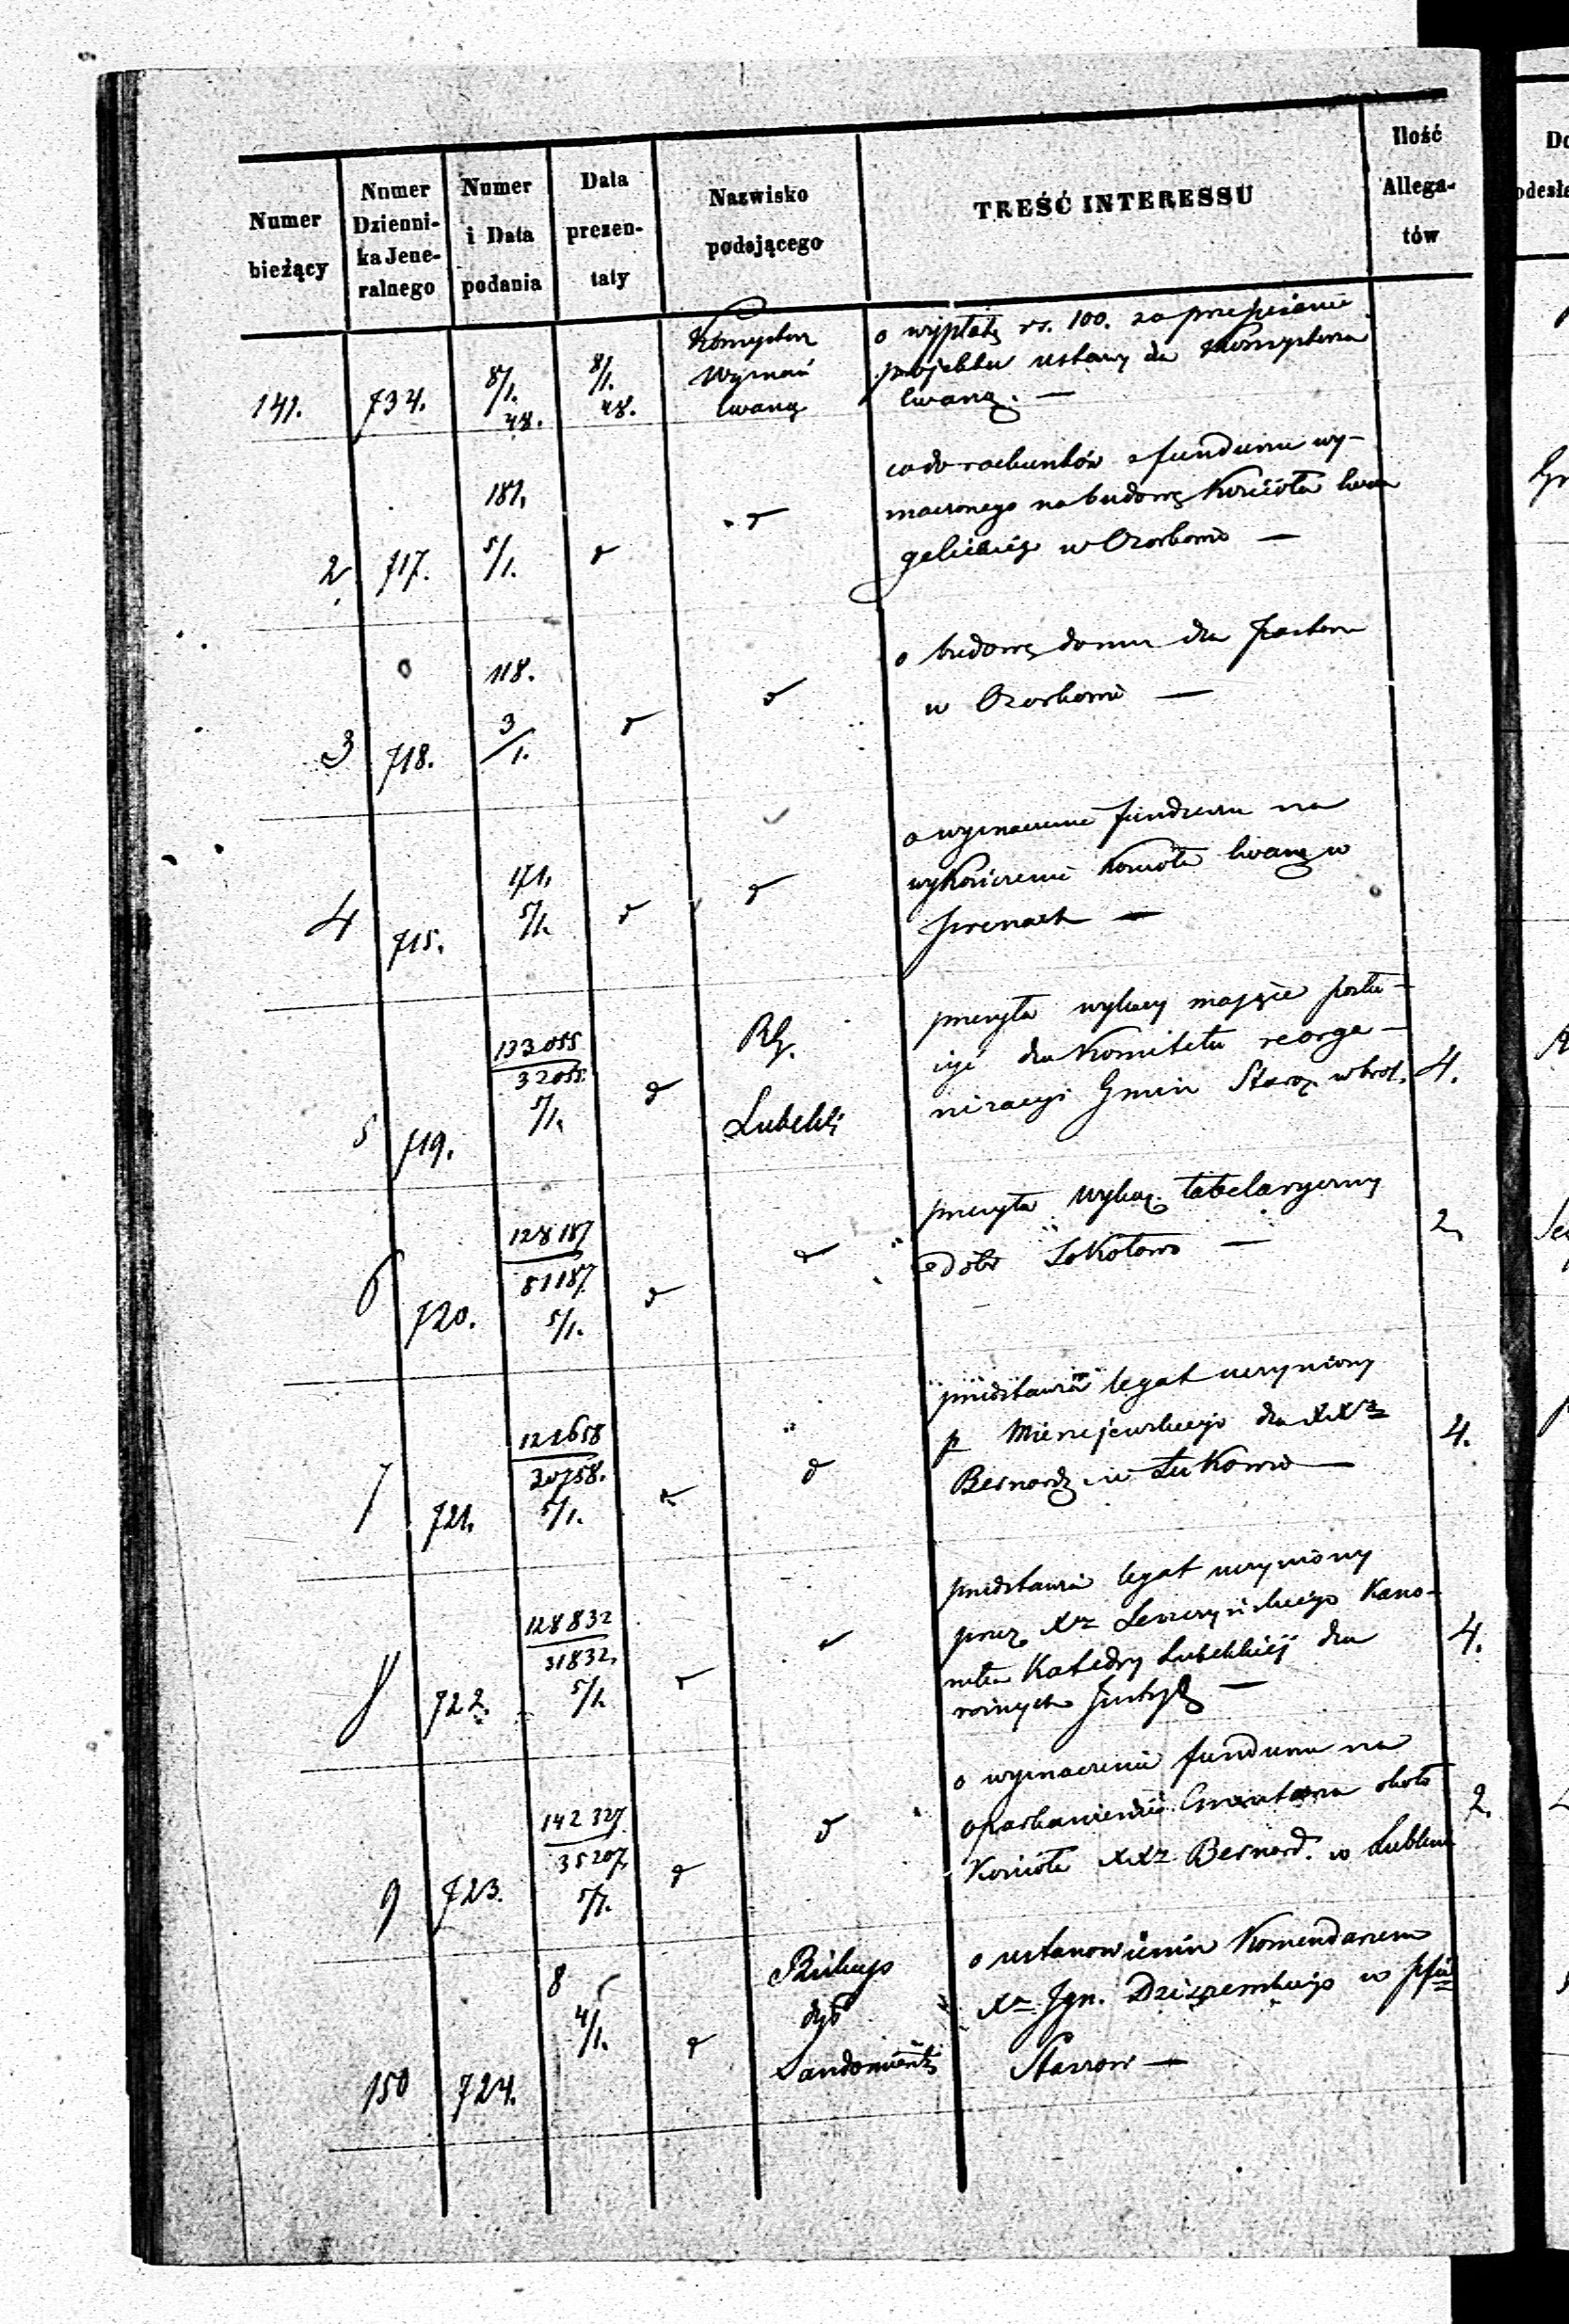 Numer bieżący
Numer Dzienni-ka Jene-ralnego
Numer i Data podania
Data prezen-taty
Nazwisko podającego
TREŚĆ INTERESSU
Ilość Allega-tów
141. 734. 8/1. 48. 8/1. 48. Konsystorz
Ewang.
o wypłatę rs. 100. za przepisanie
projektu ustawy dla Konsystorza
Ewang. —
2 717. 181. 5/1. d d
co do rachunków z funduszu wy-
znaczonego na budowę Kościoła Ewan
gelickiego w Ozorkowie —
3 718. 118. 3/1. d d
o budowę domu dla Pastora
w Ozorkowie —
4 715. 171. 5/1. d d
o wyznaczenie funduszu na
wykończenie Kościoła Ewang w
5 719. 133055 32055. 5/1. d RG. Lubelski
przesyła wykazy mające posłu-
żyć dla Komitetu reorga-
nizacyi Gmin Staroz.
4.
6 720. 128187 5/1. d d
przesyła Wykaz tabelaryczny
dóbr Sokołowo —
2
7 721. 5/1. d d
przedstawia legat uczyniony
p Mierzejewskiego dla XXz
Bernardz w Łukowie —
4.
8 722. 128832 31832. 5/1. d d
przedstawia legat uczyniony
przez Xdz Leszczyńskiego Kano-
nika Katedry Lubelskiej dla
różnych Instyt —
4.
9 723. 142327 5/1. d d
o wyznaczenie funduszu na
oparkanienie Cmentarza około
Kościoła XXz Bernard. w Lublinie
2.
150 724. 8 4/1. d Biskup
dyec
Sandomierski
o ustanowienie Komendarzem
Xa Ign. w pfii